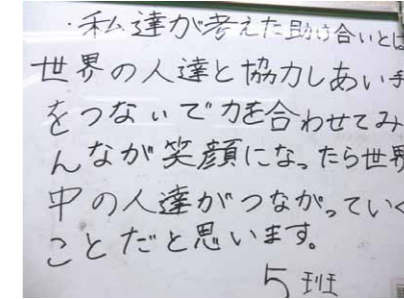 ・私達が考えた助け合いとは
世界の人達と協力しあい手
をつないで力を合わせてみ
んなが笑顔になったら世界
中の人達がつながっていく
ことだと思います。
5班